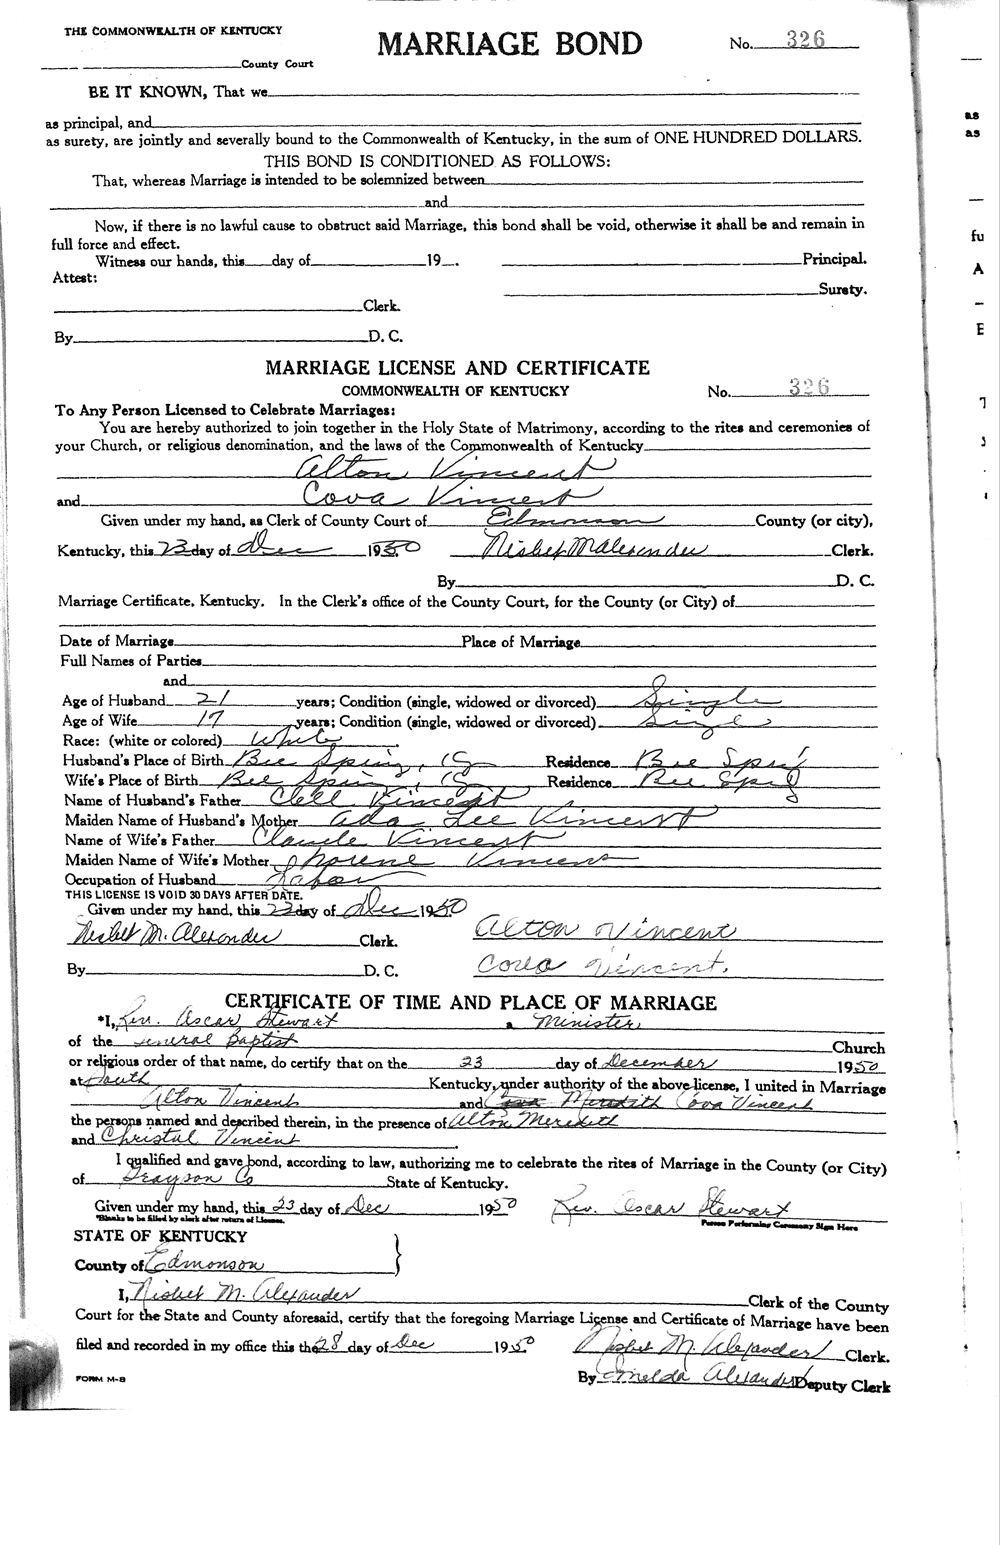 THE COMMONWEALTH OF KENTUCKY
MARRIAGE BOND
No. 326
County Court
BE IT KNOWN, That we
as principal, and
as surety, are jointly and severally bound to the Commonwealth of Kentucky, in the sum of ONE HUNDRED DOLLARS.
THIS BOND IS CONDITIONED AS FOLLOWS:
That, whereas Marriage is intended to be solemnized between
and
Now, if there is no lawful cause to obstruct said Marriage, this bond shall be void, otherwise it shall be and remain in
full force and effect.
Witness our hands, this day of 19 . Principal.
Attest:
Surety.
Clerk.
By D. C.
MARRIAGE LICENSE AND CERTIFICATE
COMMONWEALTH OF KENTUCKY No. 326
To Any Person Licensed to Celebrate Marriages:
You are hereby authorized to join together in the Holy State of Matrimony, according to the rites and ceremonies of
your Church, or religious denomination, and the laws of the Commonwealth of Kentucky
Alton Vincent
and Cova Vincent
Given under my hand, as Clerk of County Court of Edmonson County (or city),
Kentucky, this 23 day of Dec 1950 Nisbet M Alexander Clerk.
By D. C.
Marriage Certificate, Kentucky. In the Clerk's office of the County Court, for the County (or City) of
Date of Marriage Place of Marriage
Full Names of Parties
and
Age of Husband 21 years; Condition (single, widowed or divorced) Single
Age of Wife 17 years; Condition (single, widowed or divorced) Single
Race: (white or colored) White
Husband's Place of Birth Bee Spring, Ky Residence Bee Spring
Wife's Place of Birth Bee Spring, Ky Residence Bee Spring
Name of Husband's Father Clell Vincent
Maiden Name of Husband's Mother Ada Lee Vincent
Name of Wife's Father Claude Vincent
Maiden Name of Wife's Mother Norene Vincent
Occupation of Husband Labor
THIS LICENSE IS VOID 30 DAYS AFTER DATE.
Given under my hand, this 23 day of Dec 1950
Nisbet M. Alexander Clerk. Alton Vincent
By D. C. Cova Vincent.
CERTIFICATE OF TIME AND PLACE OF MARRIAGE
*I, Rev. Oscar Stewart a Minister
of the General Baptist Church
or religious order of that name, do certify that on the 23 day of December 1950
at South Kentucky, under authority of the above license, I united in Marriage
Alton Vincent and Meredith Cova Vincent
the persons named and described therein, in the presence of Alton Meredith
and Christal Vincent
I qualified and gave bond, according to law, authorizing me to celebrate the rites of Marriage in the County (or City)
of Grayson Co State of Kentucky.
Given under my hand, this 23 day of Dec 1950 Rev. Oscar Stewart
*Blanks to be filled by clerk after return of License. Person Performing Ceremony Sign Here
STATE OF KENTUCKY
County of Edmonson
I, Nisbet M. Alexander Clerk of the County
Court for the State and County aforesaid, certify that the foregoing Marriage License and Certificate of Marriage have been
filed and recorded in my office this the 28 day of Dec 1950 Nisbet M. Alexander Clerk.
FORM M-8 By Imelda Alexander Deputy Clerk